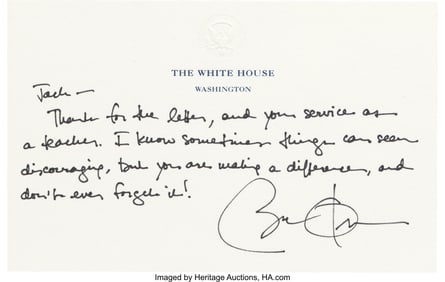 THE WHITE HOUSE
WASHINGTON
Jack —
Thanks for the letter, and your service as
a teacher. I know sometimes things can seem
discouraging, but you are making a difference, and
don't ever forget it!
Imaged by Heritage Auctions, HA.com